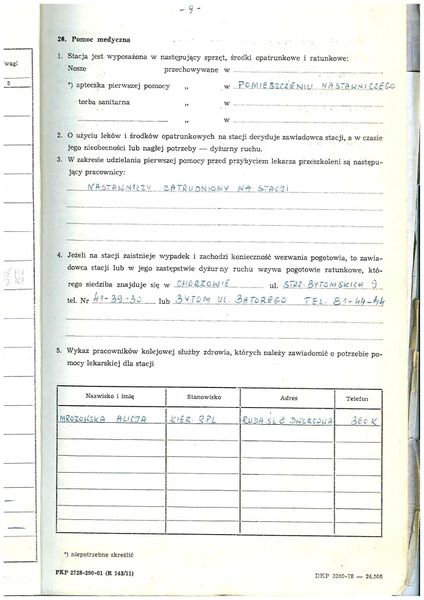 - 4 -
wagi
5
20. Pomoc medyczna
1. Stacja jest wyposażona w następujący sprzęt, środki opatrunkowe i ratunkowe:
Nosze przechowywane w
*) apteczka pierwszej pomocy „ w POMIESZCZENIU NASTAWNICZEGO
torba sanitarna „ w
„ w
2. O użyciu leków i środków opatrunkowych na stacji decyduje zawiadowca stacji, a w czasie
jego nieobecności lub nagłej potrzeby — dyżurny ruchu.
3. W zakresie udzielania pierwszej pomocy przed przybyciem lekarza przeszkoleni są następu-
jący pracownicy:
NASTAWNICZY ZATRUDNIONY NA STACJI
4. Jeżeli na stacji zaistnieje wypadek i zachodzi konieczność wezwania pogotowia, to zawia-
dowca stacji lub w jego zastępstwie dyżurny ruchu wzywa pogotowie ratunkowe, któ-
rego siedziba znajduje się w CHORZOWIE ul. STRZ. BYTOMSKICH 9
tel. Nr 41-39-30 lub BYTOM UL. BATOREGO TEL. 81-44-44
5. Wykaz pracowników kolejowej służby zdrowia, których należy zawiadomić o potrzebie po-
mocy lekarskiej dla stacji
Nazwisko i imię Stanowisko Adres Telefon
MROZOWSKA ALICJA KIER. RPL RUDA ŚL 8 DWORCOWA 360 K
*) niepotrzebne skreślić
PKP 2728-290-01 (R 142/11) DKP 3260-78 — 24.500